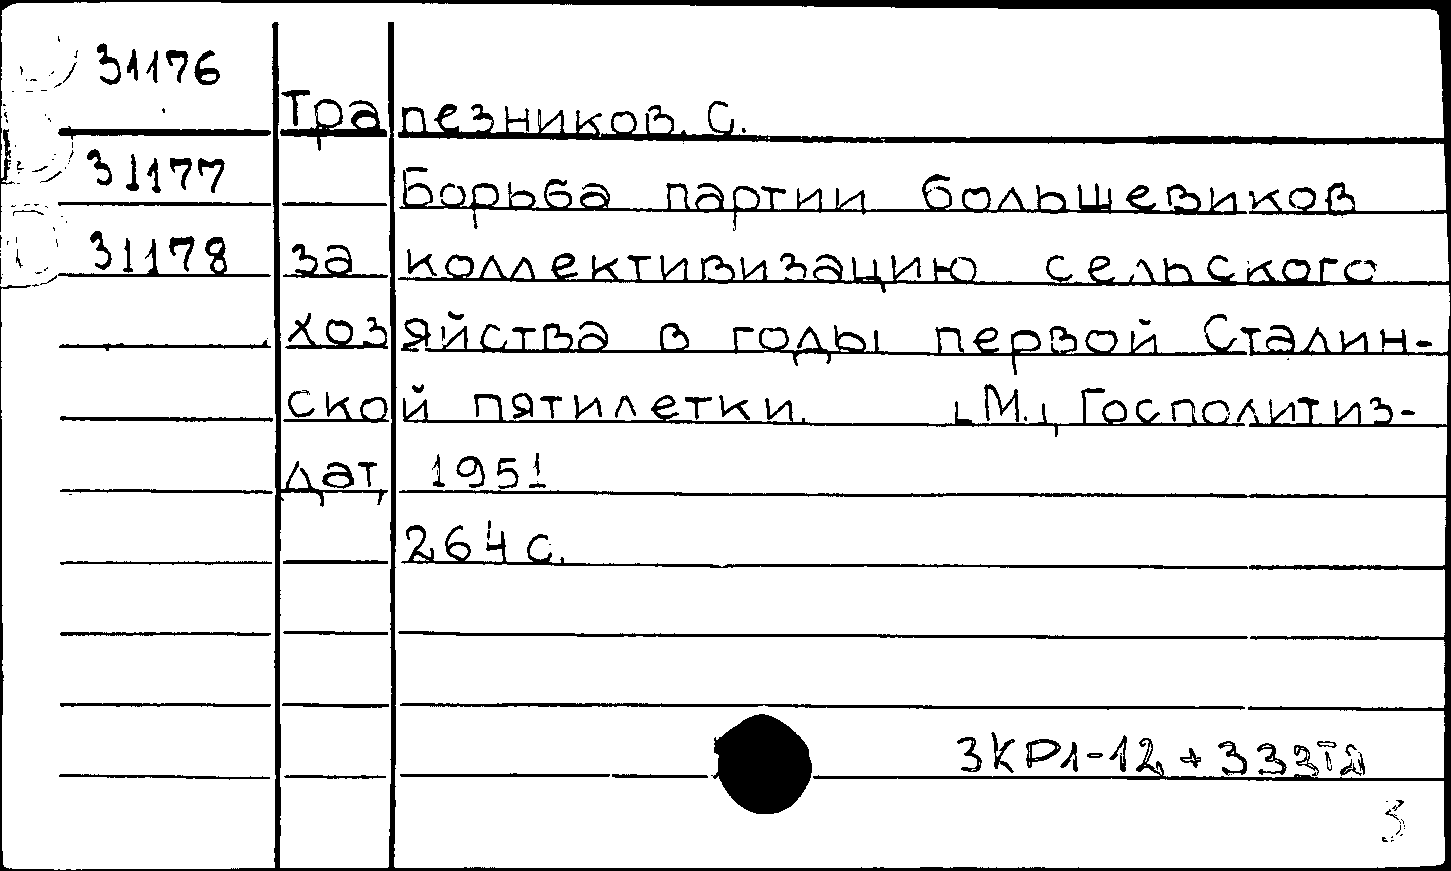 31176
Трапезников, С.
31177 Борьба партии большевиков
31178 за коллективизацию сельского
хозяйства в годы первой Сталин-
ской пятилетки. [М.], Госполитиз-
дат, 1951
264 с.
3КР1-12 +
3